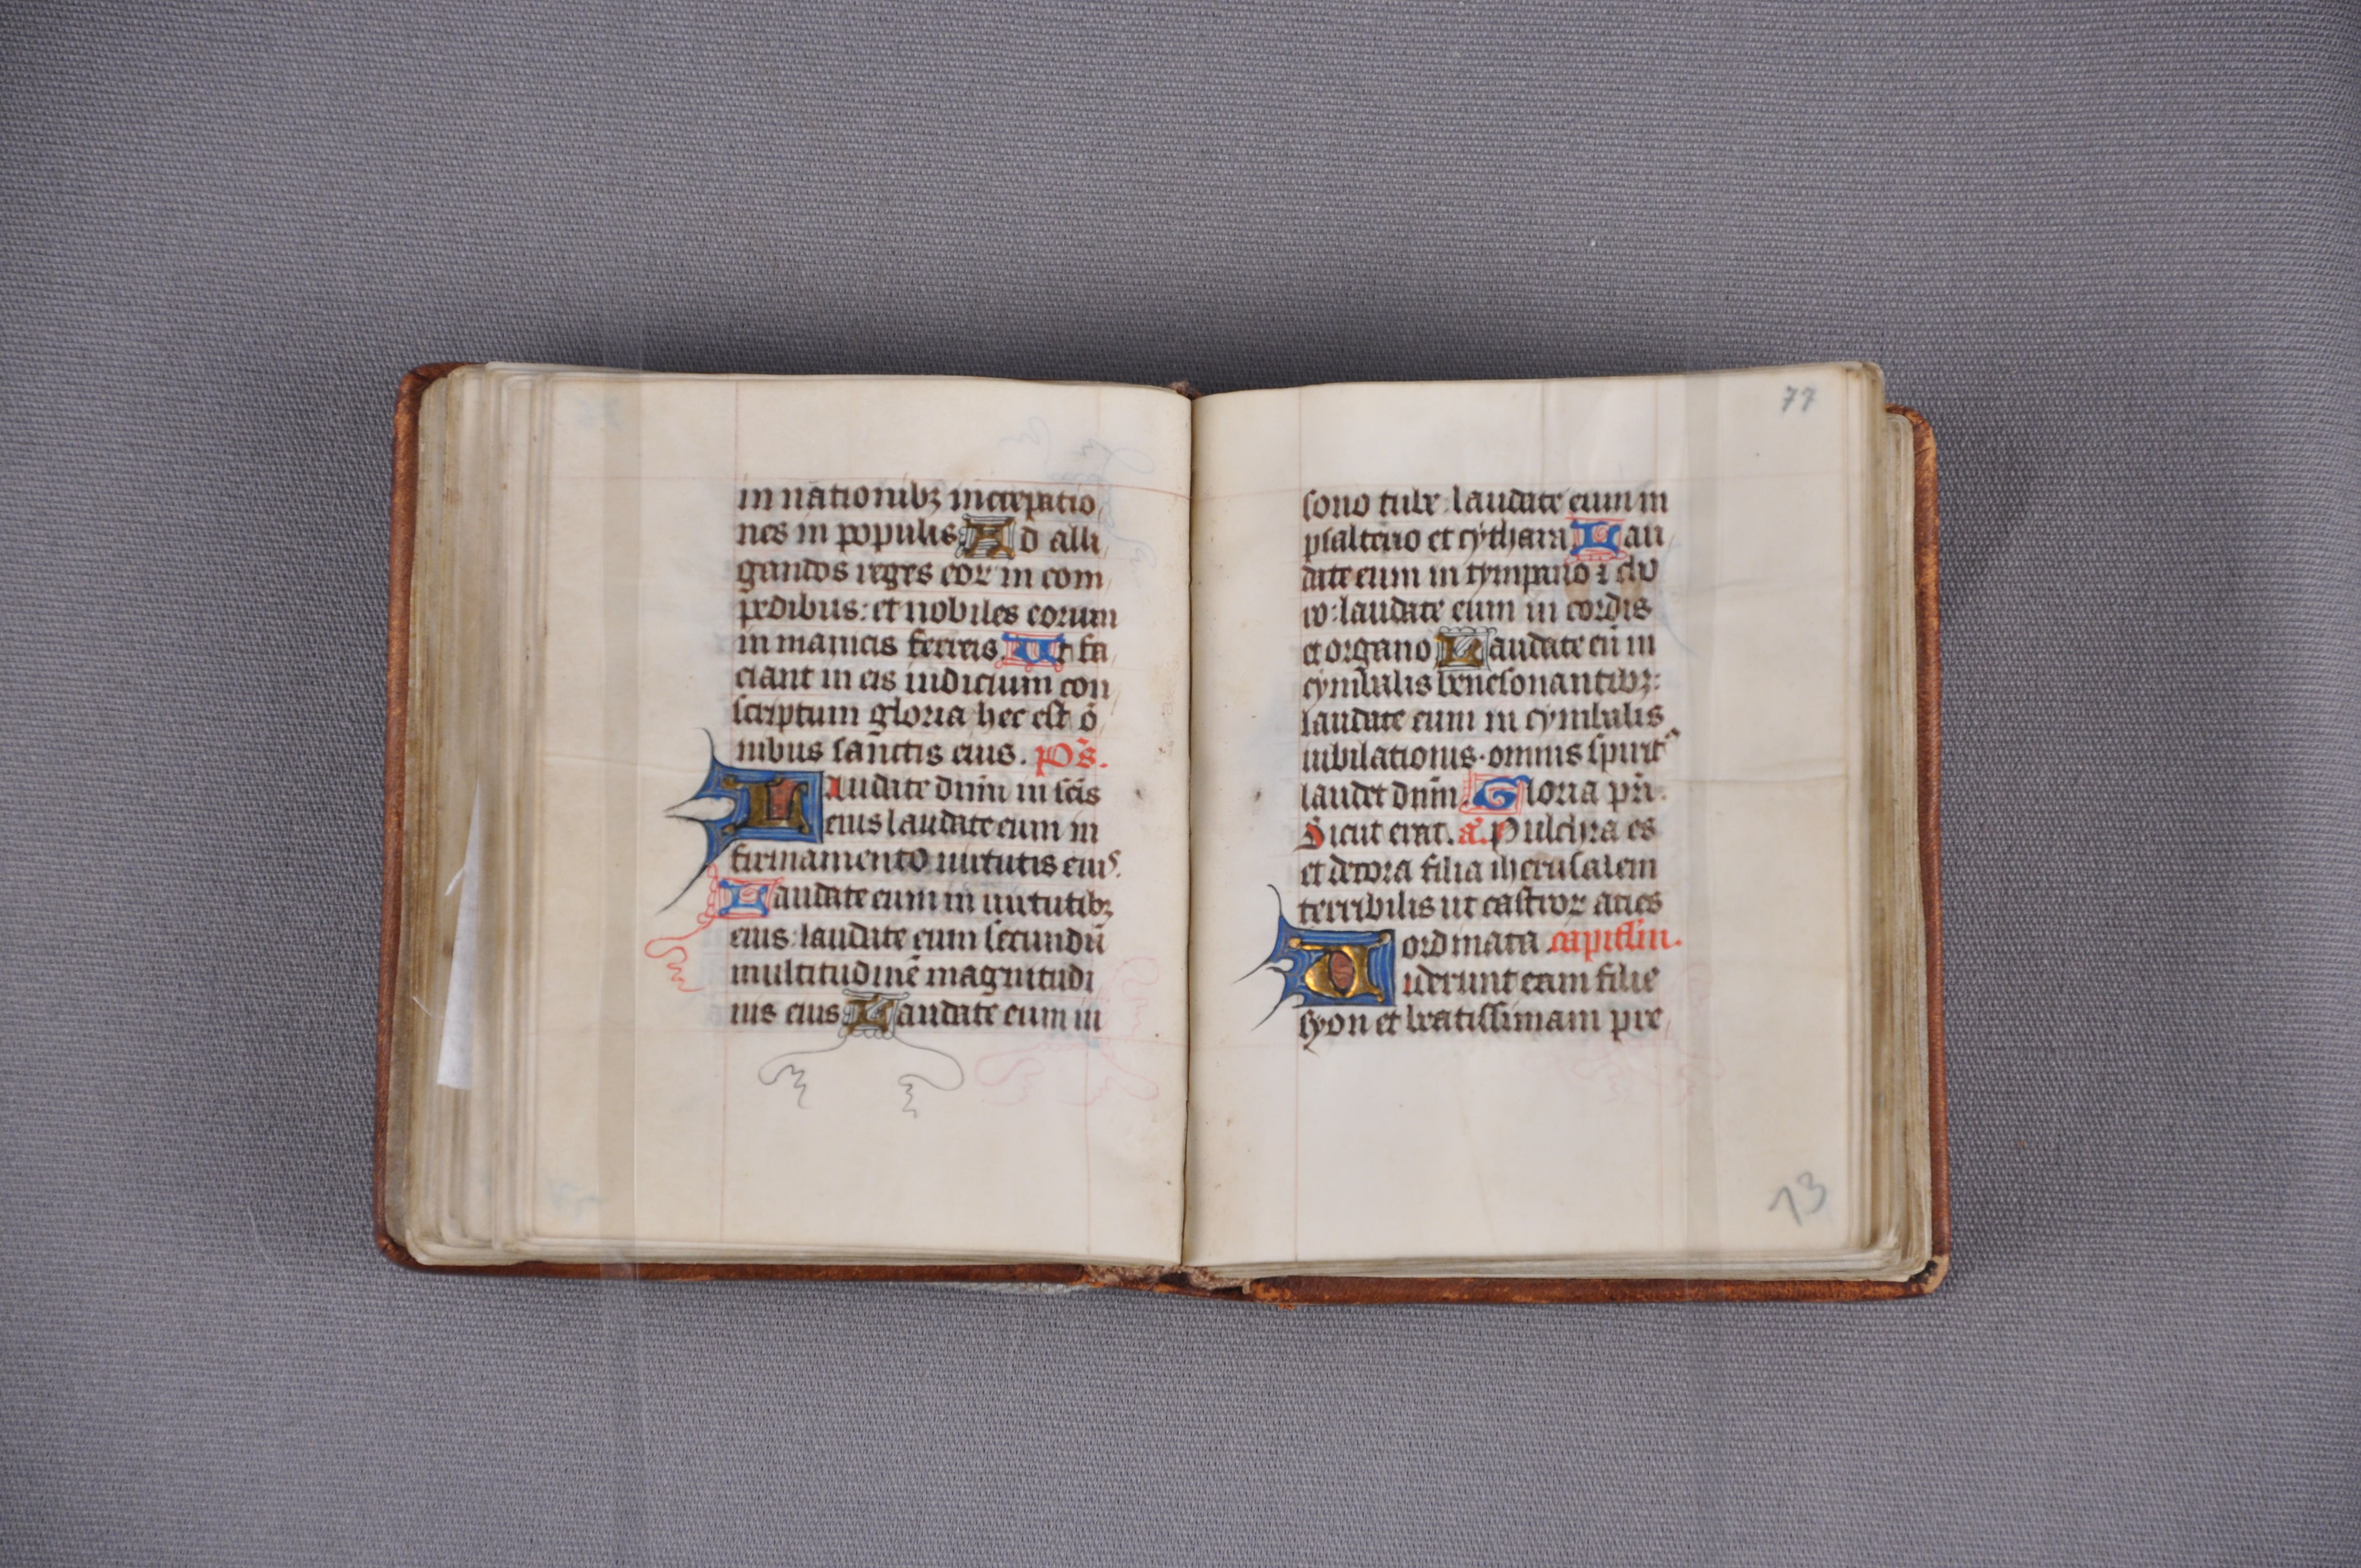 in nationibꝫ increpatio
nes in populis Ad alli
gandos reges eoꝝ in com
pedibus: et nobiles eorum
in manicis ferreis. Ut fa
ciant in eis iudicium con
scriptum gloria hec est õ
nibus sanctis eius. p̄s.
Laudate dñm in scĩs
eius laudate eum in
firmamento uirtutis eiusˀ.
Laudate eum in uirtutibꝫ
eius: laudate eum secundũ
multitudinẽ magnitudi
nis eius Laudate eum in
77
sono tube: laudate eum in
psalterio et cythara Lau
date eum in tympano ⁊ cho
ro: laudate eum in cordis
et organo Laudate eũ in
cymbalis benesonantibꝫ:
laudate eum in cymbalis
iubilationis. omnis spiritꝰ
laudet dñm. Gloria pr̃i.
Sicut erat. a̾. Pulchra es
et decora filia iherusalem
terribilis ut castroꝝ acies
ordinata capitl̃m.
Uiderunt eam filie
syon et beatissimam pre
73